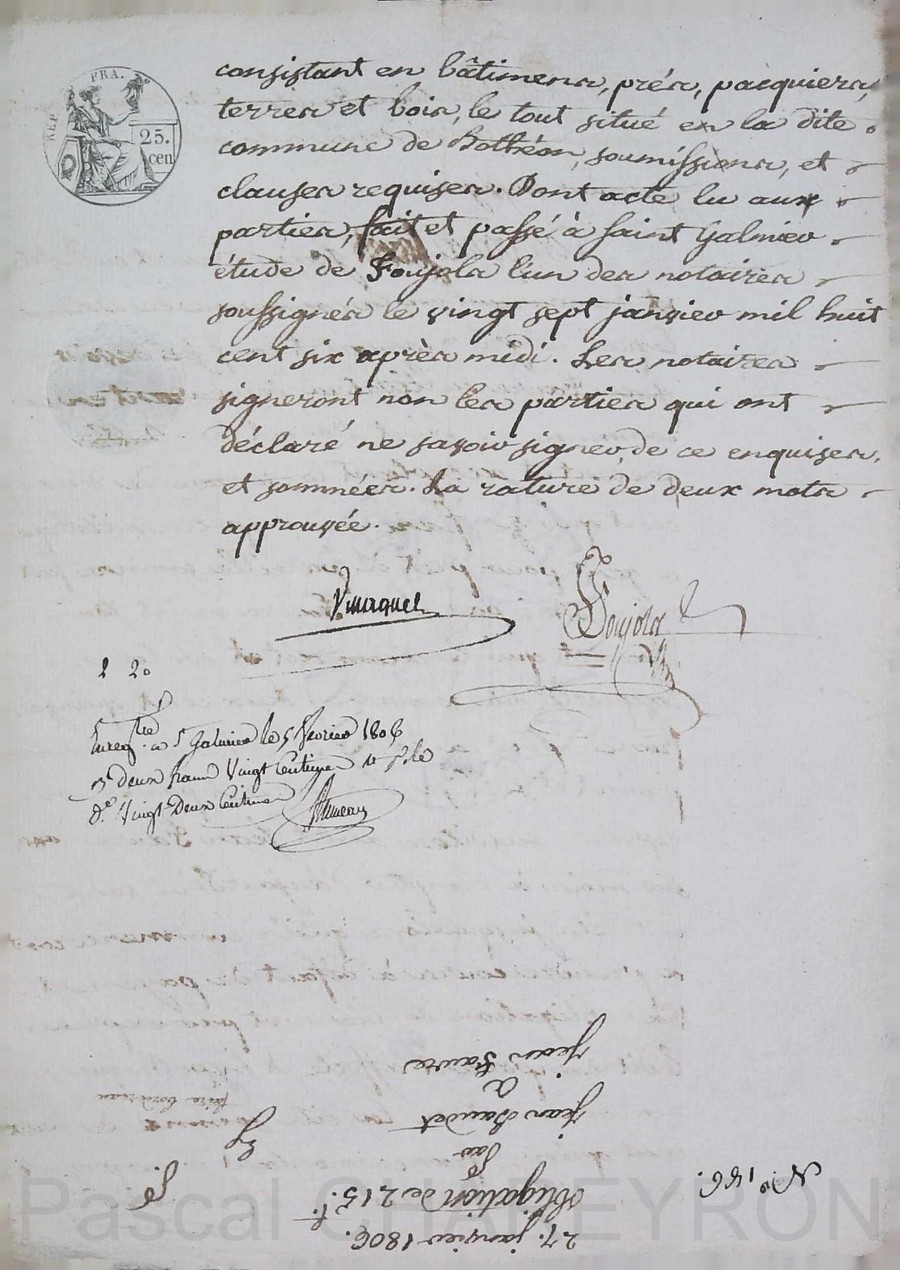 REP. FRA.
25.
cen
consistant en bâtimens, prés, pacquiers,
terres et bois, le tout situé en la dite
commune de Bothéon, soumissions, et
clauses requises. Dont acte lu aux
parties, fait et passé à Saint Galmier
étude de Foujols l'un des notaires
soussignés le vingt sept janvier mil huit
cent six après midi. Les notaires
signeront non les parties qui ont
déclaré ne savoir signer, de ce enquises,
et sommées. La rature de deux mots
approuvée.
Foujols
2 20
Enregtré a St Galmier le 5 février 1806
deux francs Vingt Centimes
Vingt Deux Centimes
27. janvier 1806.
Obligation de 215.f.
Par
Jean Baudet
à
Jean Faure
No. 156.
faire bordereau
Pascal CHALEYRON